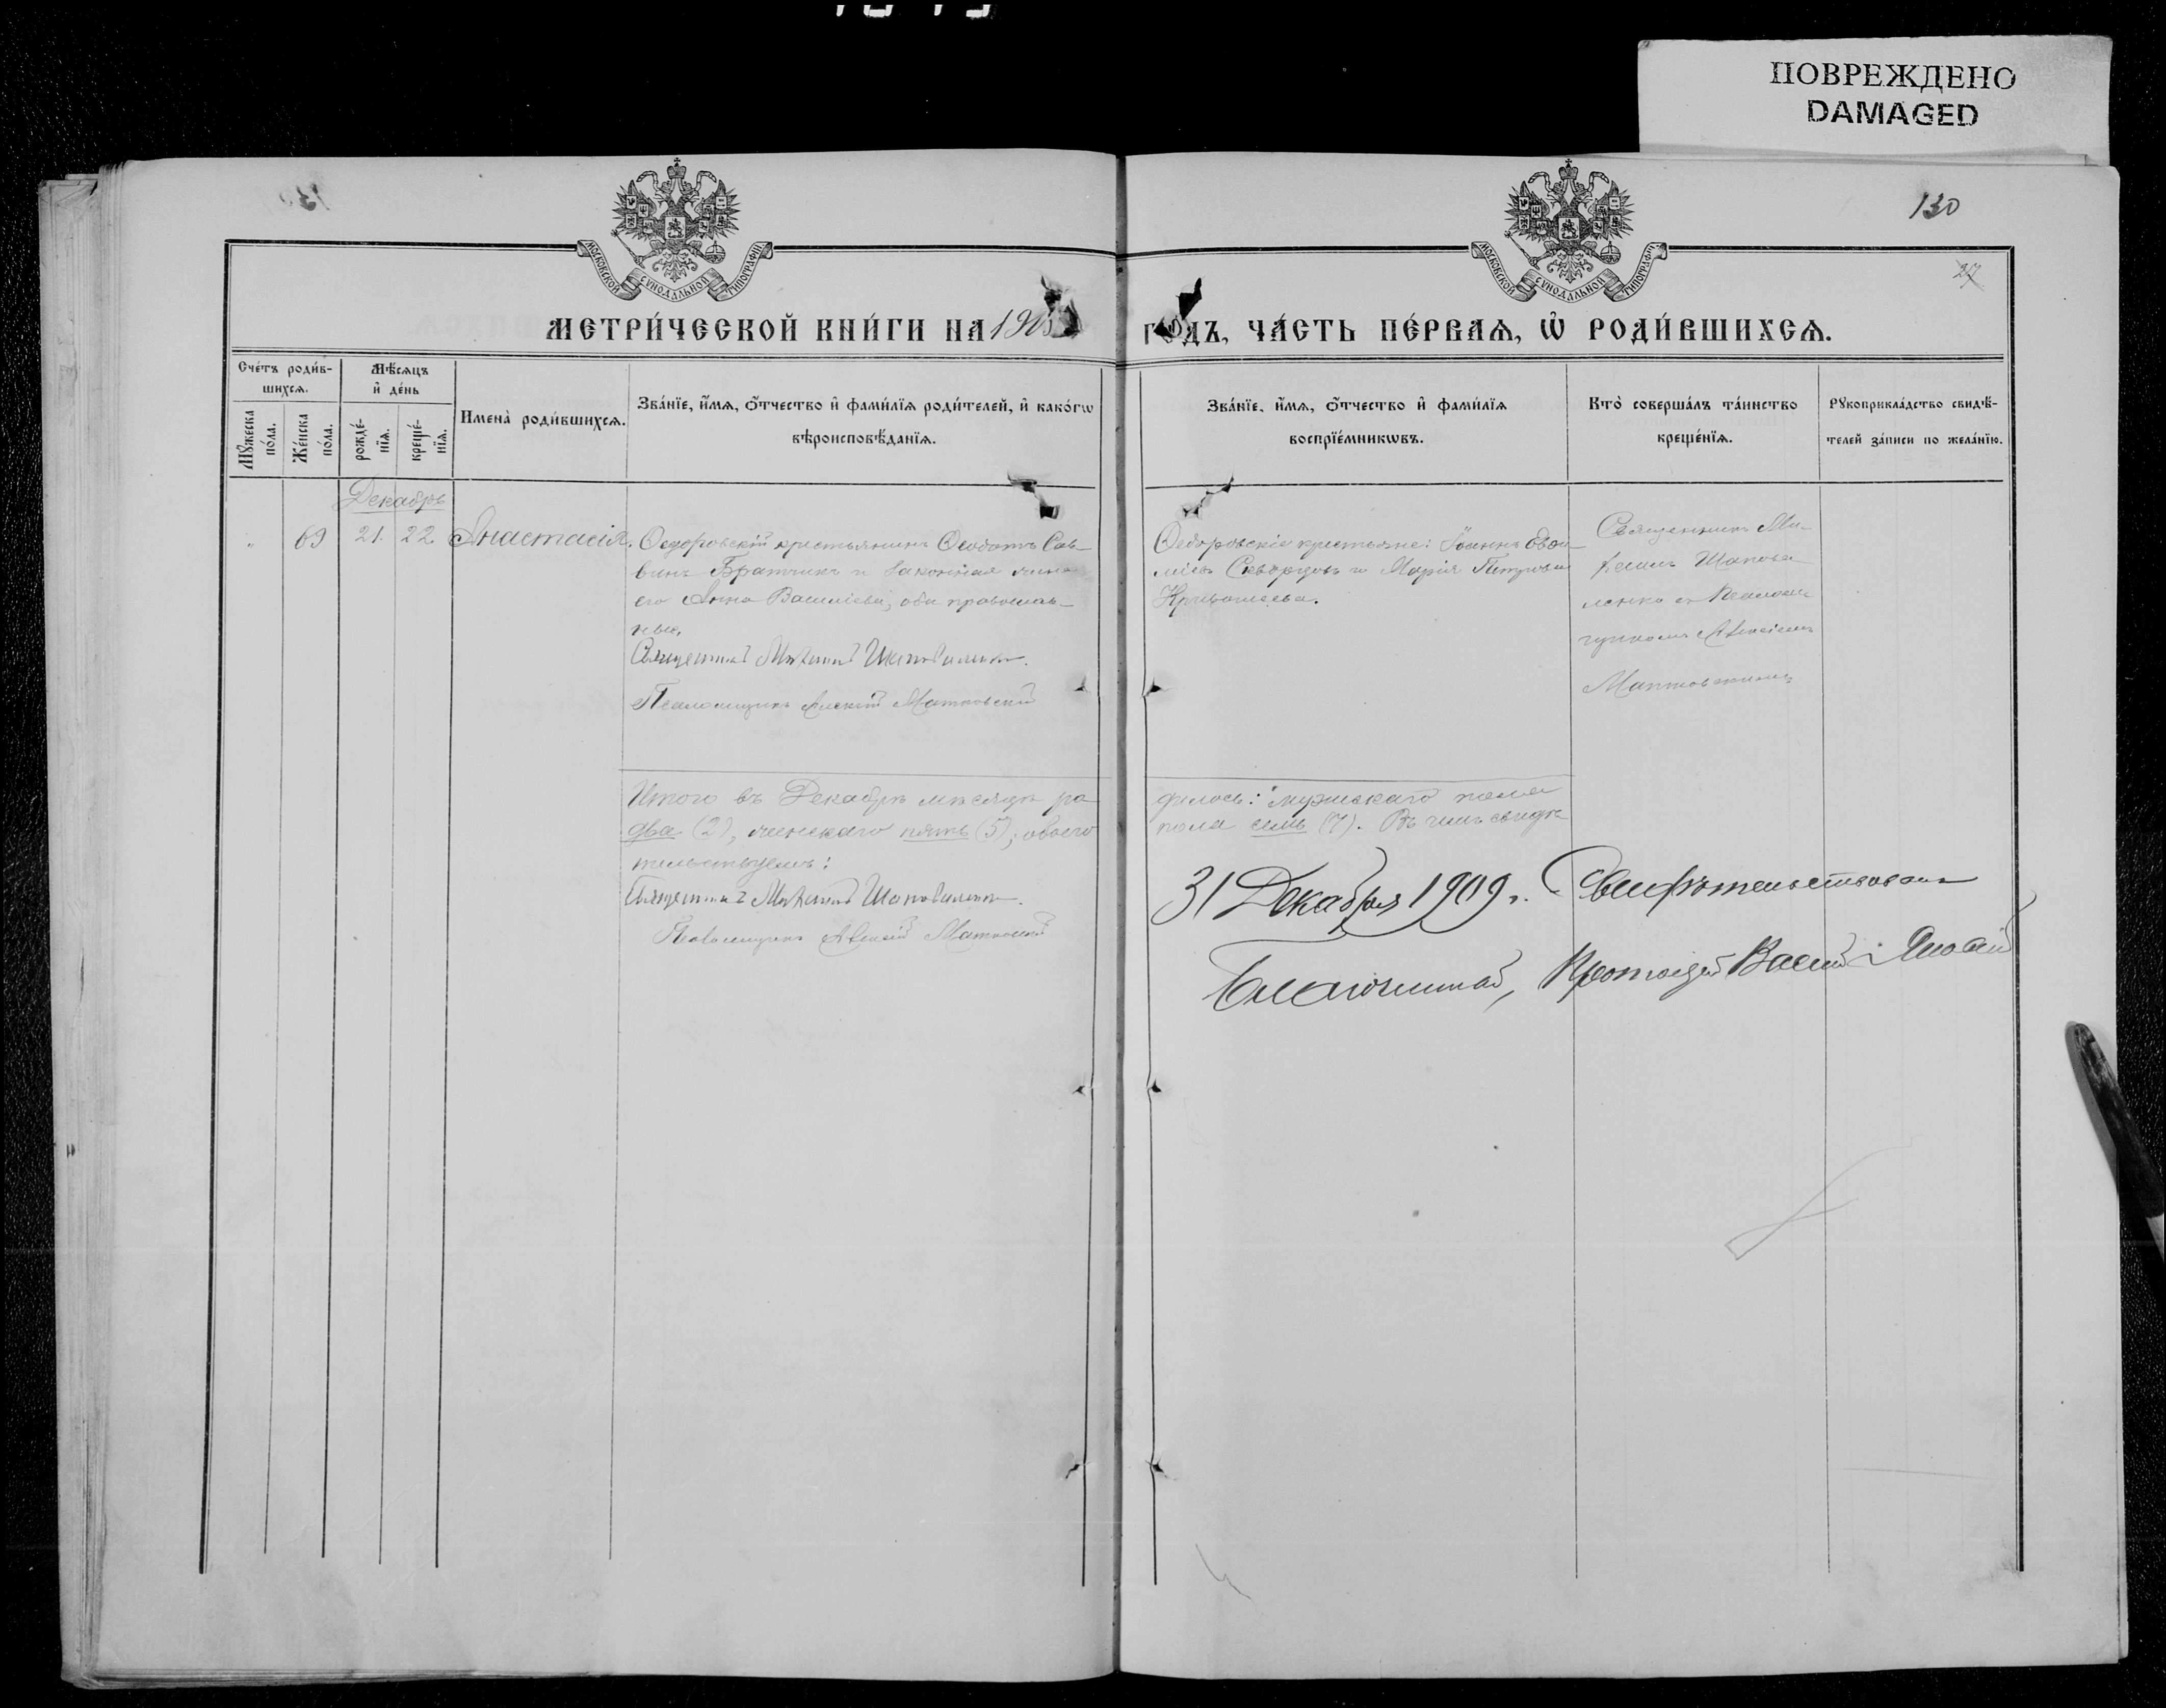 ПОВРЕЖДЕНО
DAMAGED
130
МОСКОВСКОЙ СѴНОДАЛЬНОЙ ТИПОГРАФІИ
МОСКОВСКОЙ СѴНОДАЛЬНОЙ ТИПОГРАФІИ
27
МЕТРИ́ЧЕСКОЙ КНИ́ГИ НА 190
ГОДЪ, ЧА́СТЬ ПЕ́РВАѦ, Ѡ҆ РОДИ́ВШИХСѦ.
Сче́тъ роди́в-
шихсѧ.
Мѣ́сѧцъ
и҆ де́нь
Мꙋ́жеска
по́ла.
Же́нска
по́ла.
рожде́-
нїѧ.
креще́-
нїѧ.
Имена̀ роди́вшихсѧ.
Зва́нїе, и҆́мѧ, ѻ҆́тчество и҆ фами́лїѧ роди́телей, и҆ како́гѡ
вѣроисповѣ́данїѧ.
Зва́нїе, и҆́мѧ, ѻ҆́тчество и҆ фами́лїѧ
воспрїе́мникѡвъ.
Кто̀ соверша́лъ та́инство
креще́нїѧ.
Рꙋкоприкла́дство свидѣ́-
телей за́писи по жела́нїю.
Декабрь
69 21. 22. Анастасія.
Ѳедоровскій крестьянинъ Ѳеодотъ Сав-
винъ Братчикъ и законная жена
его Анна Василіева, оба православ-
ные.
Священникъ Михаилъ Шаповаленко.
Псаломщикъ Алексій Матковскій
Ѳедоровскіе крестьяне: Іоаннъ
Скворцовъ и Марія Петрова
Кривошеева.
Священникъ Ми-
хаилъ Шапова-
ленко съ Псалом-
щикомъ Алексіемъ
Матковскимъ
Итого въ Декабрѣ мѣсяцѣ ро-
дилось: мужескаго пола
два (2), женскаго пять (5), обоего
пола семь (7). Въ чемъ свидѣ-
тельствуемъ:
Священникъ Михаилъ Шаповаленко.
Псаломщикъ Алексій Матковскій
31 Декабря 1909 г. Свидѣтельствовалъ
Благочинный, Протоіерей Василій